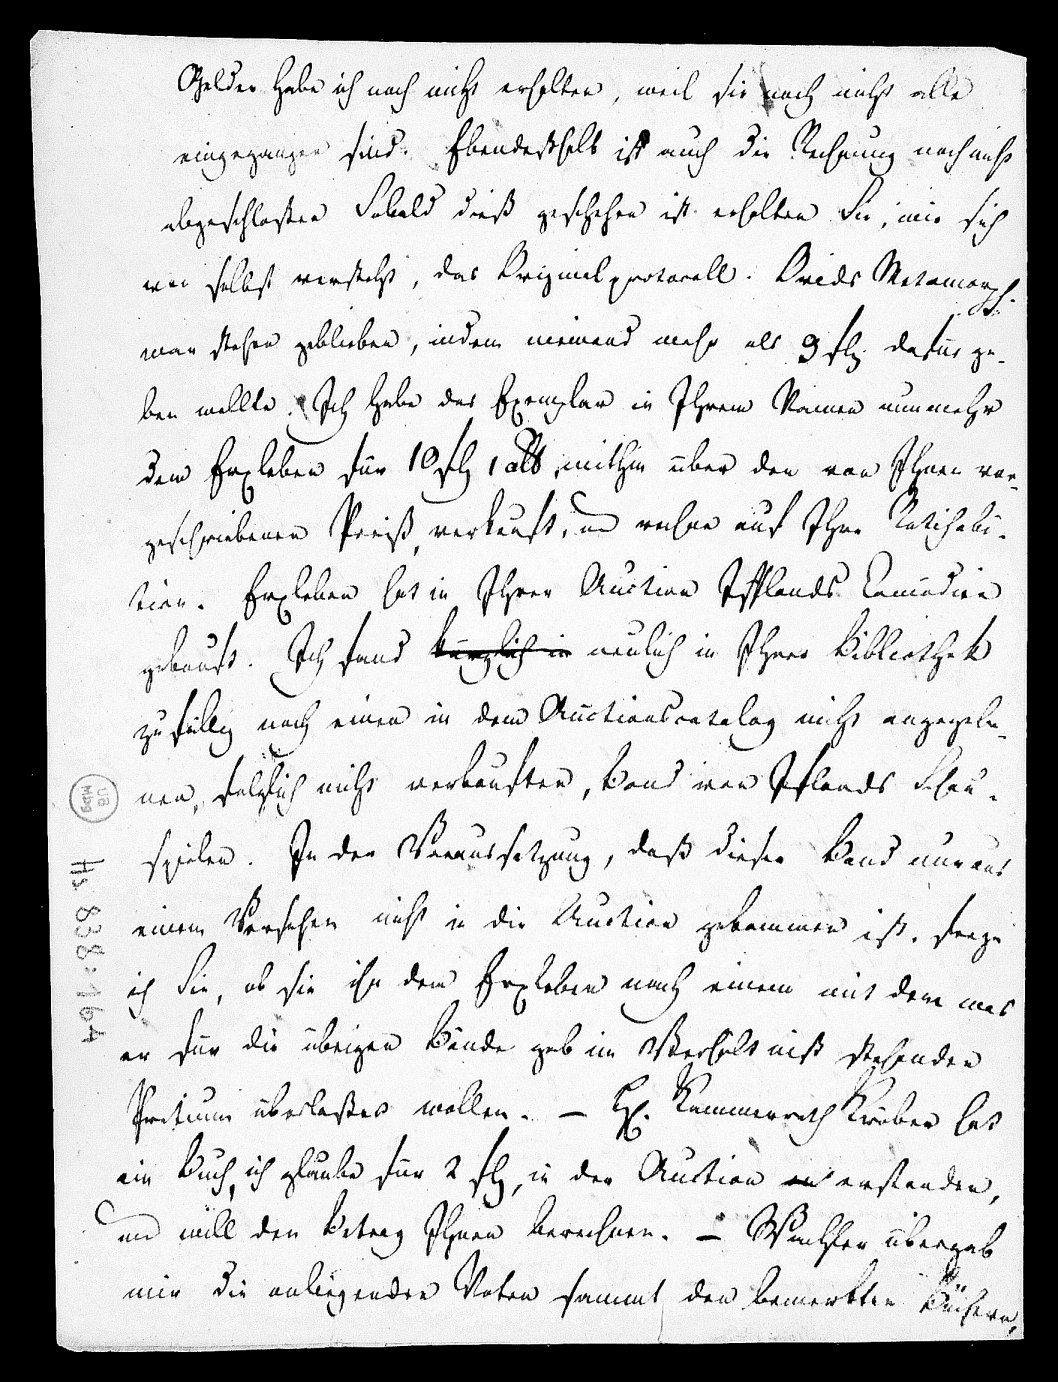 Gelder habe ich noch nicht erhalten, weil sie noch nicht alle
eingegangen sind. Ebendeßhalb ist auch die Rechnung noch nicht
abgeschloßen Sobald dieß geschehen ist erhalten Sie, wie sich
von selbst versteht, das Originalprotocoll. Ovids Metamorph.
war stehen geblieben, indem niemand mehr als 9 fl dafür ge-
ben wollte. Ich habe das Exemplar in Ihrem Namen nunmehr
dem Erxleben für 10 fl 1 alb, mithin über den von Ihnen vor-
geschriebenen Preiß, verkauft, und rechne auf Ihre Ratihabi-
tion. Erxleben hat in Ihrer Auction Ifflands Comödien
gekauft. Ich fand kürzlich in neulich in Ihrer Bibliothek
zufällig noch einen in dem Auctionscatalog nicht angegebe-
nen, folglich nicht verkauften, Band von Iflands Schau-
spielen. In der Voraussetzung, daß dieser Band nur aus
einem Versehen nicht in die Auction gekommen ist, frage
ich Sie, ob sie ihn dem Erxleben nach einem mit dem was
er für die übrigen Bände gab im Verhältniß stehenden
Pretium überlaßen wollen. – H. Kammerrath Kröber hat
ein Buch, ich glaube für 2 fl, in der Auction erstanden,
und will den Betrag Ihnen berechnen. – Wachler übergab
mir die anliegenden Noten sammt den bemerkten Büchern,
UB
Mbg
Hs 838:164